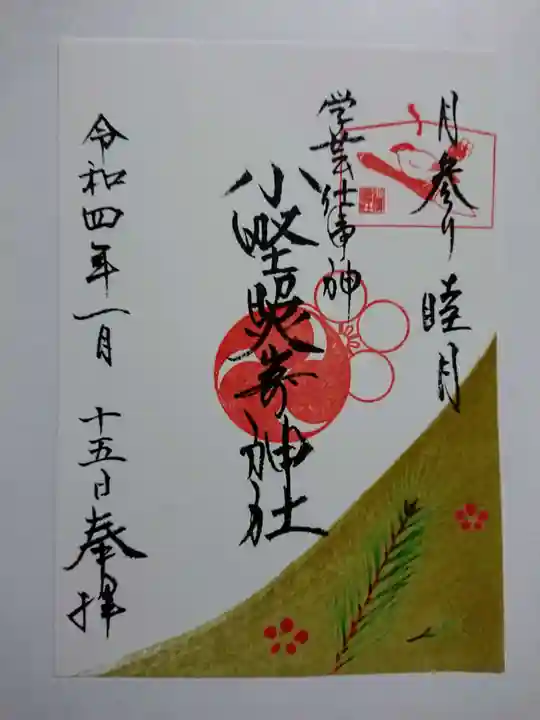 月参り 睦月
学芸仕事神
小野照崎神社
令和四年一月 十五日 奉拝